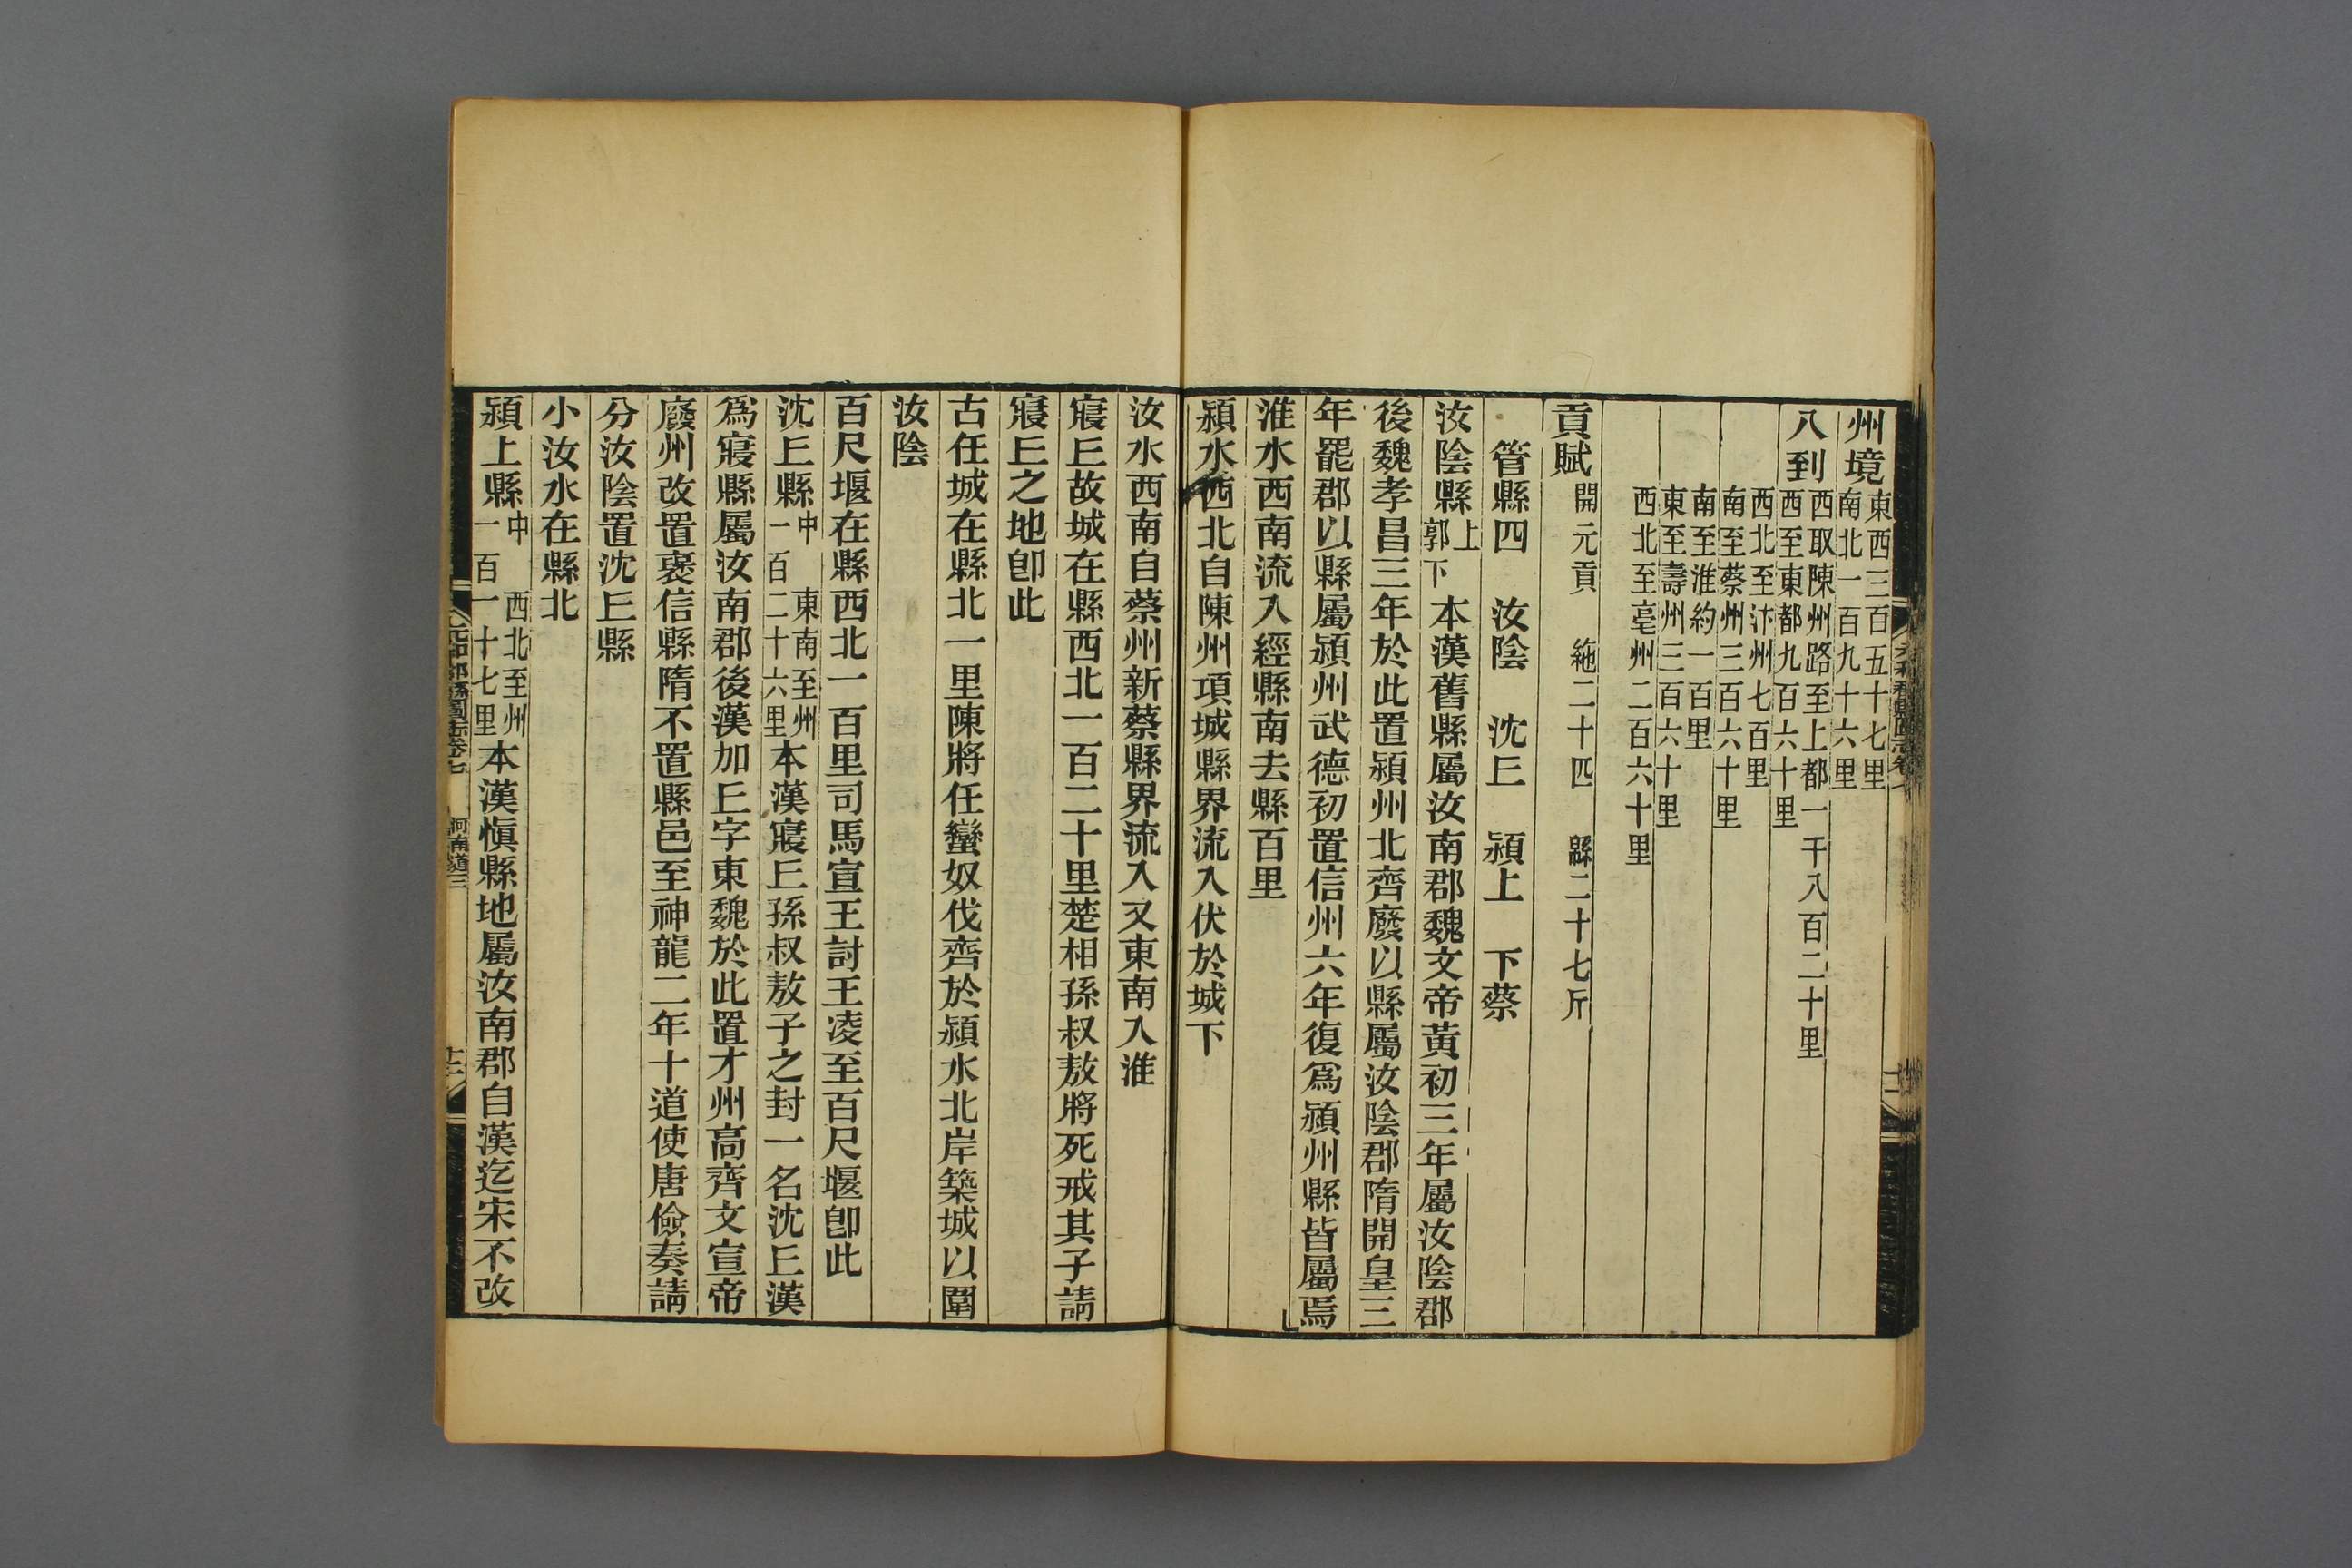 州境東西三百五十七里南北一百九十六里
八到西取陳州路至上都一千八百二十里西至東都九百六十里
西北至汴州七百里南至蔡州三百六十里
南至淮約一百里東至壽州三百六十里
西北至亳州二百六十里
貢賦開元貢 絁二十匹 緜二十七斤
管縣四 汝陰 沈丘 潁上 下蔡
汝陰縣上郭下本漢舊縣屬汝南郡魏文帝黃初三年屬汝陰郡
後魏孝昌三年於此置潁州北齊廢以縣屬汝陰郡隋開皇三
年罷郡以縣屬潁州武德初置信州六年復爲潁州縣皆屬焉
淮水西南流入經縣南去縣百里
潁水西北自陳州項城縣界流入伏於城下
汝水西南自蔡州新蔡縣界流入又東南入淮
寢丘故城在縣西北一百二十里楚相孫叔敖將死戒其子請
寢丘之地卽此
古任城在縣北一里陳將任蠻奴伐齊於潁水北岸築城以圍
汝陰
百尺堰在縣西北一百里司馬宣王討王凌至百尺堰卽此
沈丘縣中東南至州一百二十六里本漢寢丘孫叔敖子之封一名沈丘漢
爲寢縣屬汝南郡後漢加丘字東魏於此置才州高齊文宣帝
廢州改置襃信縣隋不置縣邑至神龍二年十道使唐儉奏請
分汝陰置沈丘縣
小汝水在縣北
潁上縣中西北至州一百一十七里本漢愼縣地屬汝南郡自漢迄宋不改
元和郡縣圖志卷七 河南道三